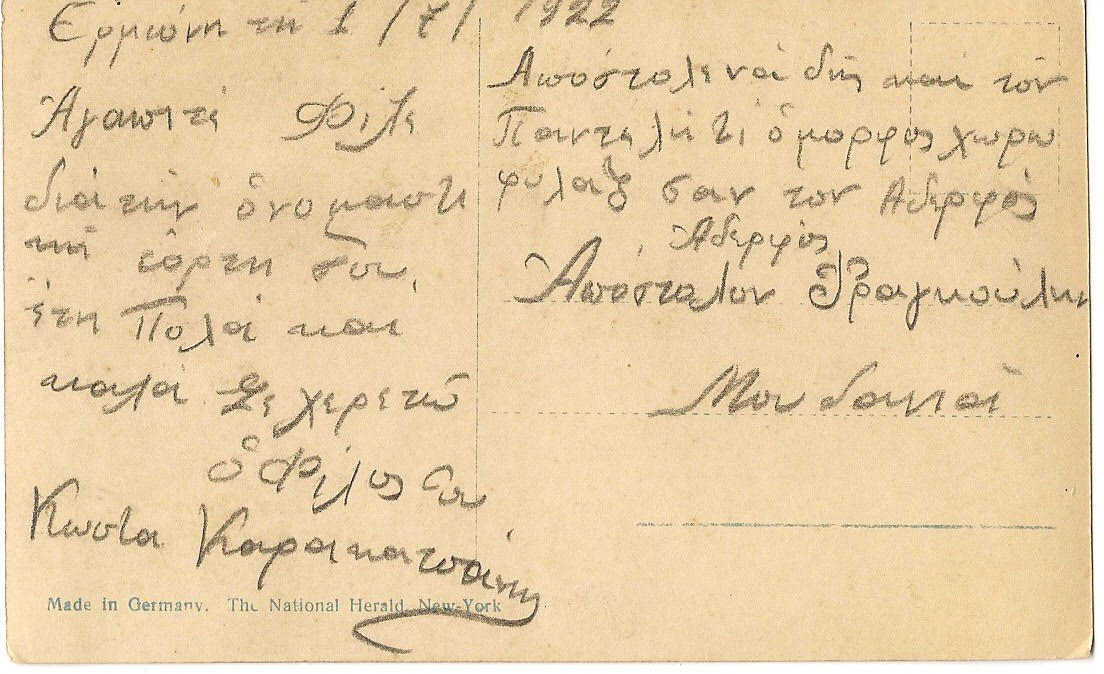 Ερμιόνη τη 1/7/1922
Ἀγαπιτέ Φίλε
διά τὴν ὀνομαστι
κή εόρτη σου,
ἔτη Πολά και
καλά Σε χερετῶ
ὁ Φίλος σου
Κωστα Καρακατσάνη
Ἀπόστολε νά δῆς και τόν
Παντελή τι ὄμορφος χωρο
φυλαξ σαν τον Αδερφός
Ἀδερφός
Ἀπόστολον Φραγκούλην
Μουδανιά
Made in Germany. The National Herald, New-York